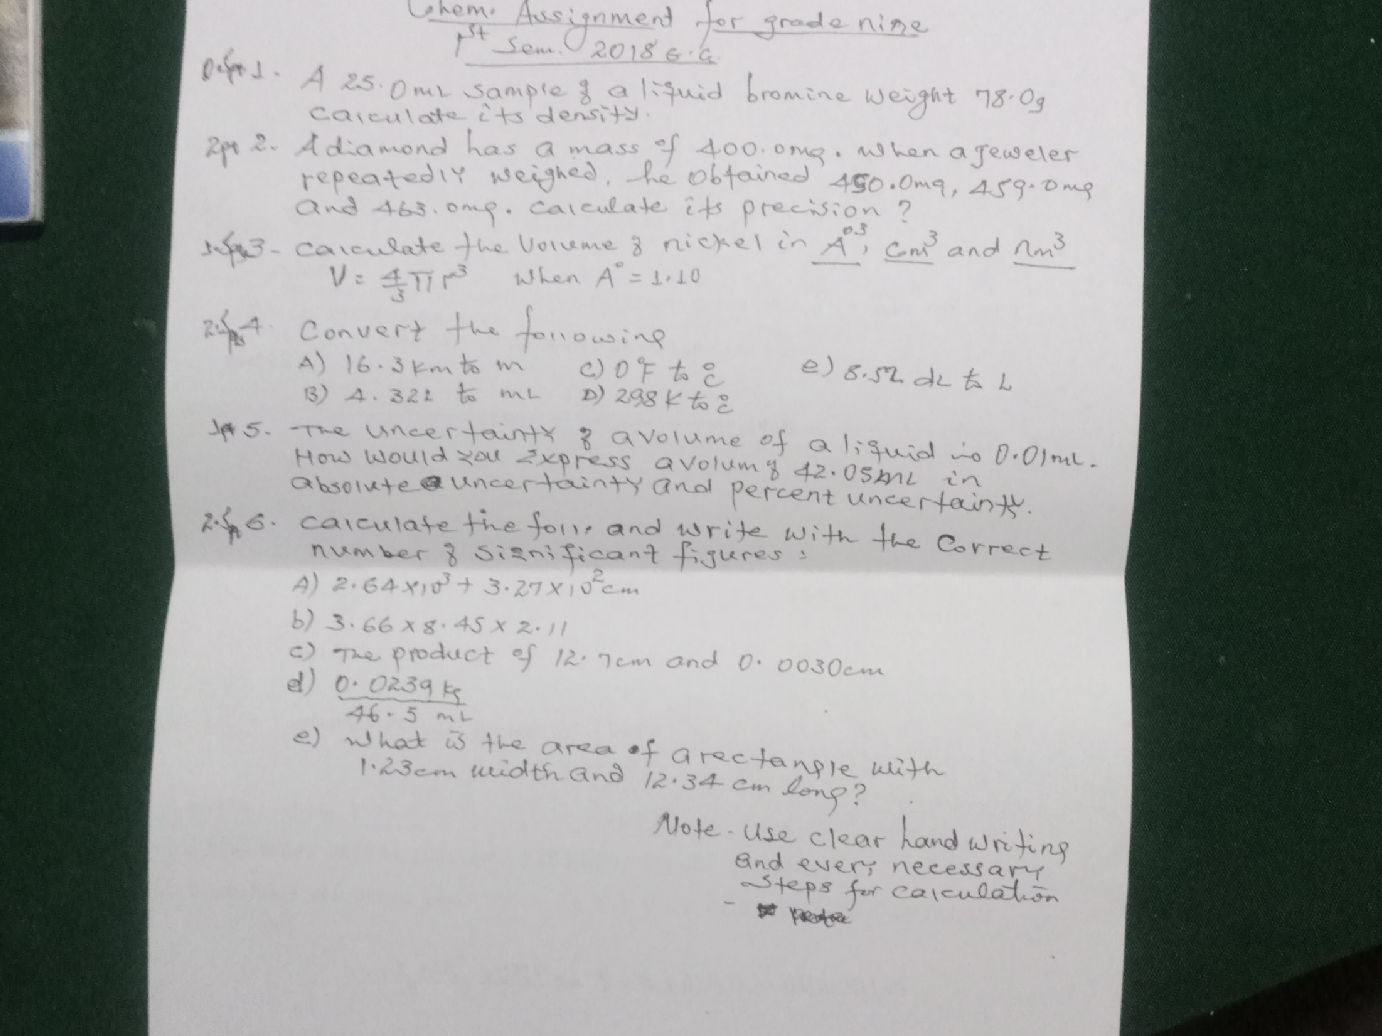 Chem. Assignment for grade nine
1st Sem. 2018 G.C
0.5pt 1. A 25.0mL sample of a liquid bromine weight 78.0g
calculate its density.
2pt 2. A diamond has a mass of 400.0mg. When a jeweler
repeatedly weighed, he obtained 450.0mg, 459.0mg
and 463.0mg. Calculate its precision?
1.5pt 3- calculate the Volume of nickel in A°3, cm3 and nm3
V = 4/3 πr3 when A° = 1.10
2.5pt 4. Convert the following
A) 16.3 km to m C) 0°F to °C e) 8.52 dL to L
B) 4.32L to mL D) 298 K to °C
1pt 5. The uncertainty of a volume of a liquid is 0.01mL.
How would you express a volum of 42.05mL in
absolute uncertainty and percent uncertainty.
2.5pt 6. calculate the foll. and write with the Correct
number of significant figures:
A) 2.64 x 10^3 + 3.27 x 10^2 cm
b) 3.66 x 8.45 x 2.11
c) The product of 12.7cm and 0.0030cm
d) 0.0239 kg
46.5 mL
e) What is the area of a rectangle with
1.23cm width and 12.34 cm long?
Note - Use clear hand writing
and every necessary
steps for calculation